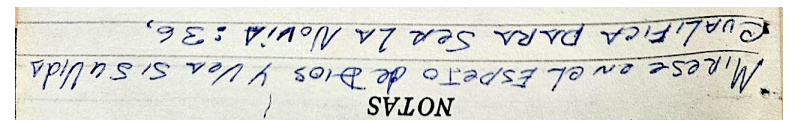 NOTAS
MIRESE EN EL ESPEJO de DIOS Y VeR SI SU VIdA
CUALIFICA PARA SER LA NOVIA : 36,